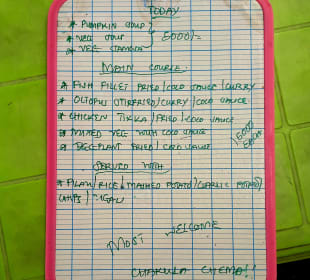 TODAY
* PUMPKIN SOUP
* VEG SOUP } 5000/=
* VEG SAMOSA
MAIN COURSE
* FISH FILLET FRIED / COCO SAUCE / CURRY
* OCTOPUS STIRFRIED / CURRY / COCO SAUCE
* CHICKEN TIKKA / FRIED / COCO SAUCE
* MIXED VEG WITH COCO SAUCE
* EGGPLANT FRIED / COCO SAUCE
SERVED WITH
* PILAU / RICE / MASHED POTATO / GARLIC POTATO /
CHIPS / UGALI
MOST WELCOME
CHAKULA CHEMA!!